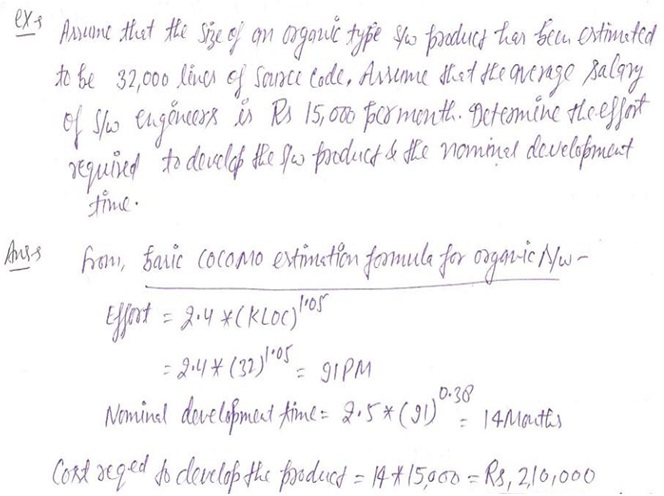 Ex→ Assume that the size of an organic type s/w product has been estimated
to be 32,000 lines of source code. Assume that the average salary
of s/w engineers is Rs 15,000 per month. Determine the effort
required to develop the s/w product & the nominal development
time.
Ans→ From, basic COCOMO estimation formula for organic s/w -
Effort = 2.4 * (KLOC)^1.05
= 2.4 * (32)^1.05 = 91 PM
Nominal development time = 2.5 * (91)^0.38 = 14 Months
Cost reqed to develop the product = 14 * 15,000 = Rs, 2,10,000